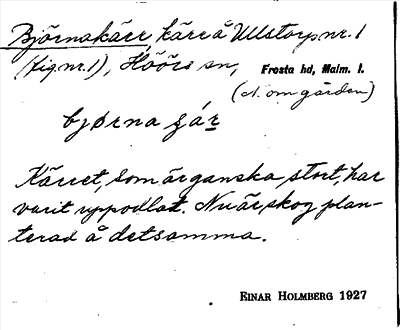 Björnakärr, kärr å Ullstorp nr. 1
(fig. nr. 1), Höörs sn, Frosta hd, Malm. l.
(N. om gården)
bjørna ʒár
Kärret, som är ganska stort, har
varit uppodlat. Nu är skog plan-
terad å detsamma.
EINAR HOLMBERG 1927